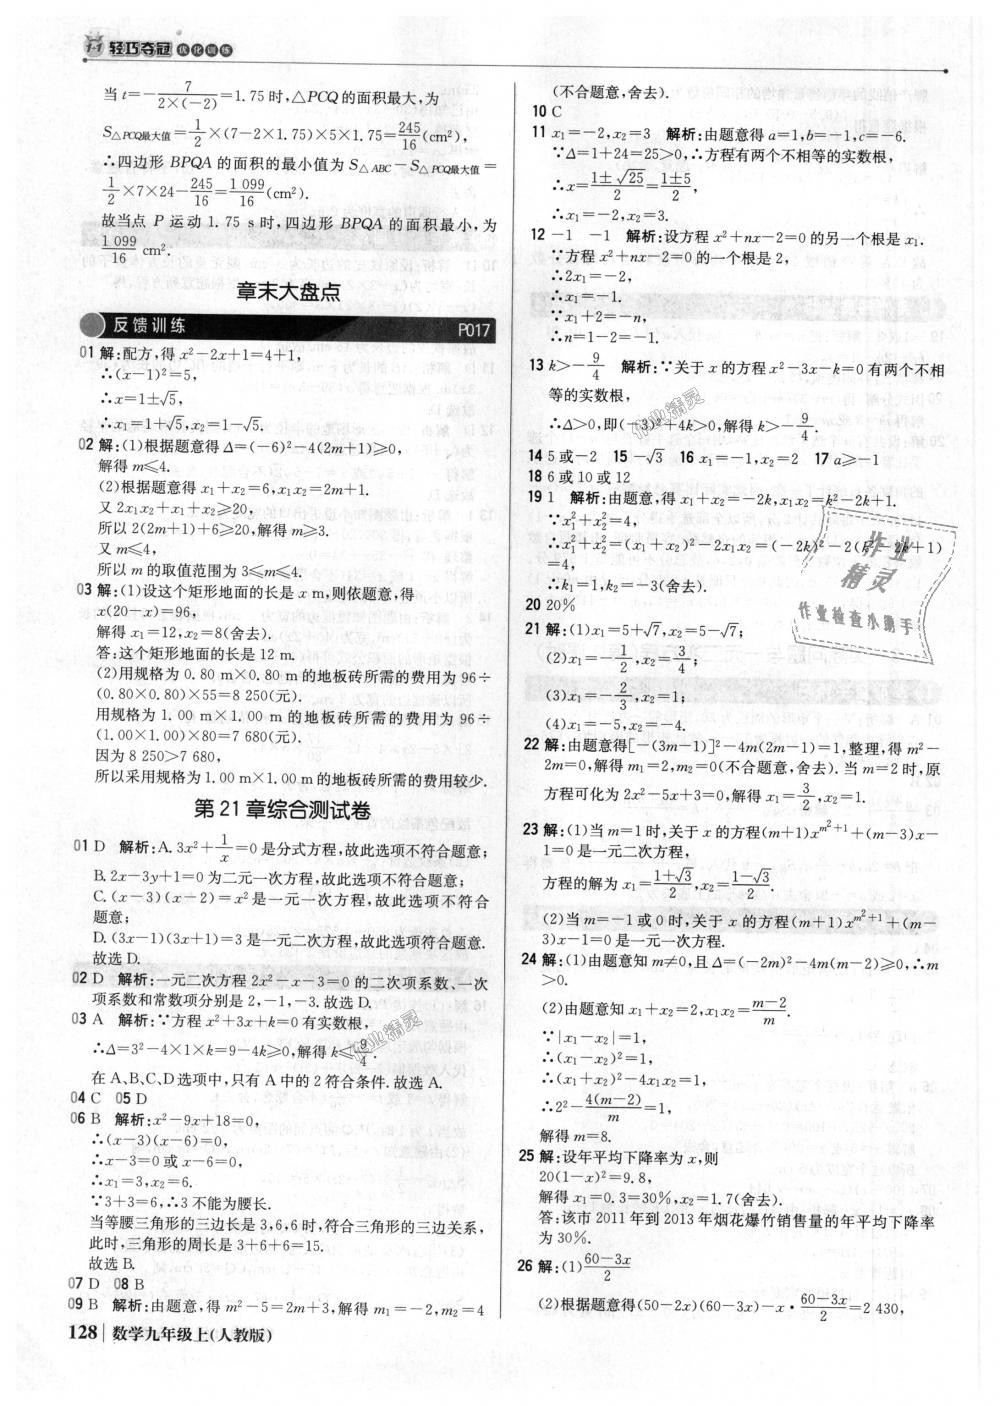 1+1 轻巧夺冠 优化训练
当t=-7/(2×(-2))=1.75时,△PCQ的面积最大,为
S△PCQ最大值=1/2×(7-2×1.75)×5×1.75=245/16(cm²),
∴四边形BPQA的面积的最小值为S△ABC-S△PCQ最大值=
1/2×7×24-245/16=1 099/16(cm²).
故当点P运动1.75 s时,四边形BPQA的面积最小,为
1 099/16 cm².
章末大盘点
反馈训练 P017
01 解:配方,得x²-2x+1=4+1,
∴(x-1)²=5,
∴x=1±√5,
∴x₁=1+√5,x₂=1-√5.
02 解:(1)根据题意得Δ=(-6)²-4(2m+1)≥0,
解得m≤4.
(2)根据题意得x₁+x₂=6,x₁x₂=2m+1.
又2x₁x₂+x₁+x₂≥20,
所以2(2m+1)+6≥20,解得m≥3.
又m≤4,
所以m的取值范围为3≤m≤4.
03 解:(1)设这个矩形地面的长是x m,则依题意,得
x(20-x)=96,
解得x₁=12,x₂=8(舍去).
答:这个矩形地面的长是12 m.
(2)用规格为0.80 m×0.80 m的地板砖所需的费用为96÷
(0.80×0.80)×55=8 250(元).
用规格为1.00 m×1.00 m的地板砖所需的费用为96÷
(1.00×1.00)×80=7 680(元).
因为8 250>7 680,
所以采用规格为1.00 m×1.00 m的地板砖所需的费用较少.
第21章综合测试卷
01 D 解析:A.3x²+1/x=0是分式方程,故此选项不符合题意;
B.2x-3y+1=0为二元一次方程,故此选项不符合题意;
C.(x-3)(x-2)=x²是一元一次方程,故此选项不符合
题意;
D.(3x-1)(3x+1)=3是一元二次方程,故此选项符合题意.
故选D.
02 D 解析:一元二次方程2x²-x-3=0的二次项系数、一次
项系数和常数项分别是2,-1,-3.故选D.
03 A 解析:∵方程x²+3x+k=0有实数根,
∴Δ=3²-4×1×k=9-4k≥0,解得k≤9/4.
在A、B、C、D选项中,只有A中的2符合条件.故选A.
04 C 05 D
06 B 解析:x²-9x+18=0,
∴(x-3)(x-6)=0,
∴x-3=0或x-6=0,
∴x₁=3,x₂=6.
∵3+3=6,∴3不能为腰长.
当等腰三角形的三边长是3,6,6时,符合三角形的三边关系,
此时,三角形的周长是3+6+6=15.
故选B.
07 D 08 B
09 B 解析:由题意,得m²-5=2m+3,解得m₁=-2,m₂=4
128 数学九年级上(人教版)
(不合题意,舍去).
10 C
11 x₁=-2,x₂=3 解析:由题意得a=1,b=-1,c=-6.
∵Δ=1+24=25>0,∴方程有两个不相等的实数根,
∴x=(1±√25)/2=(1±5)/2,
∴x₁=-2,x₂=3.
12 -1 -1 解析:设方程x²+nx-2=0的另一个根是x₁.
∵方程x²+nx-2=0的一个根是2,
∴2x₁=-2,
∴x₁=-1.
∵x₁+2=-n,
∴n=1-2=-1.
13 k>-9/4 解析:∵关于x的方程x²-3x-k=0有两个不相
等的实数根,
∴Δ>0,即(-3)²+4k>0,解得k>-9/4.
14 5或-2 15 -√3 16 x₁=-1,x₂=2 17 a≥-1
18 6或10或12
19 1 解析:由题意,得x₁+x₂=-2k,x₁x₂=k²-2k+1.
∵x₁²+x₂²=4,
∴x₁²+x₂²=(x₁+x₂)²-2x₁x₂=(-2k)²-2(k²-2k+1)
=4,
∴k₁=1,k₂=-3(舍去).
20 20%
21 解:(1)x₁=5+√7,x₂=5-√7;
(2)x₁=-1/2,x₂=1;
(3)x₁=-2/3,x₂=1;
(4)x₁=-5,x₂=-4.
22 解:由题意得[-(3m-1)]²-4m(2m-1)=1,整理,得m²-
2m=0,解得m₁=2,m₂=0(不合题意,舍去).当m=2时,原
方程可化为2x²-5x+3=0,解得x₁=3/2,x₂=1.
23 解:(1)当m=1时,关于x的方程(m+1)x^(m²+1)+(m-3)x-
1=0是一元二次方程,
方程的解为x₁=(1+√3)/2,x₂=(1-√3)/2.
(2)当m=-1或0时,关于x的方程(m+1)x^(m²+1)+(m-
3)x-1=0是一元一次方程.
24 解:(1)由题意知m≠0,且Δ=(-2m)²-4m(m-2)≥0,∴m
>0.
(2)由题意知x₁+x₂=2,x₁x₂=(m-2)/m.
∵|x₁-x₂|=1,
∴(x₁+x₂)²-4x₁x₂=1,
∴2²-4(m-2)/m=1,
解得m=8.
25 解:设年平均下降率为x,则
20(1-x)²=9.8,
解得x₁=0.3=30%,x₂=1.7(舍去).
答:该市2011年到2013年烟花爆竹销售量的年平均下降率
为30%.
26 解:(1)(60-3x)/2
(2)根据题意得(50-2x)(60-3x)-x·(60-3x)/2=2 430,
作业精灵
作业
精灵
作业检查小助手